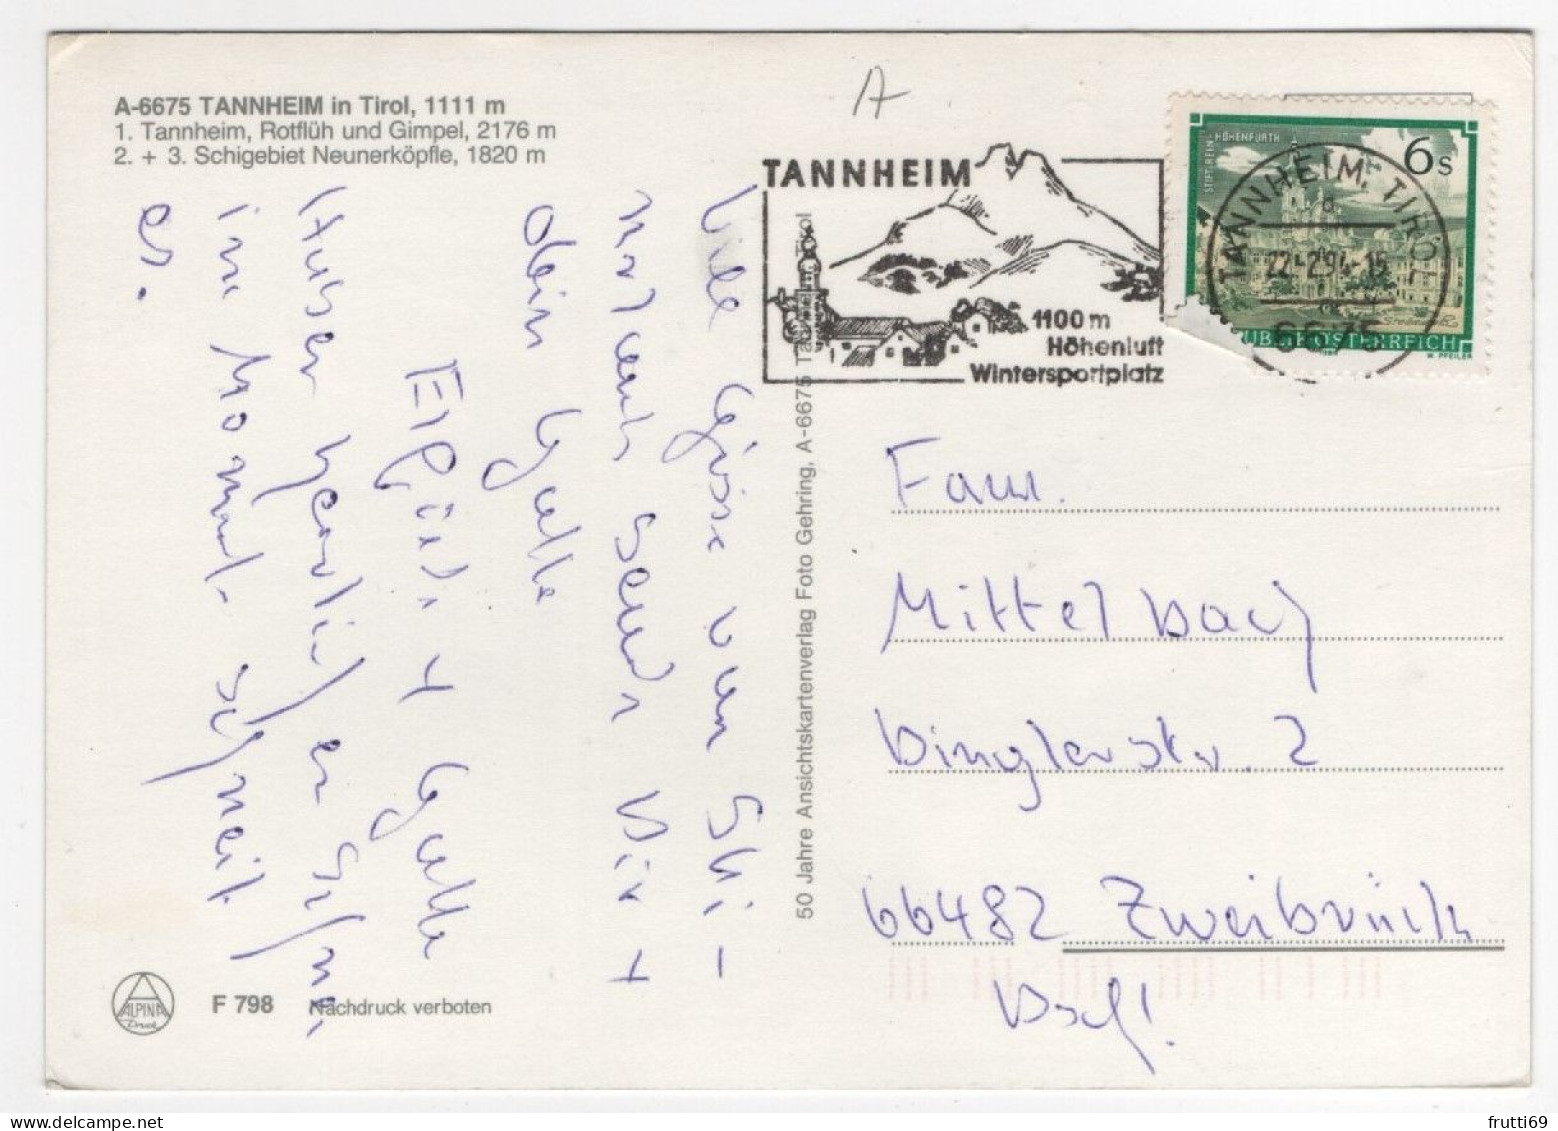 A
A-6675 TANNHEIM in Tirol, 1111 m
1. Tannheim, Rotflüh und Gimpel, 2176 m
2. + 3. Schigebiet Neunerköpfle, 1820 m
TANNHEIM
1100 m
Höhenluft
Wintersportplatz
STIFT REIN-HOHENFURTH
6 s
REPUBLIK ÖSTERREICH
W. PFEILER
TANNHEIM, TIROL
22.-2.94-15
6675
Viele Grüsse vom Ski-
urlaub sendet Dir +
dein Gatte
+ Gatte
Haben herrlichen Schnee,
im Moment schneit
es.
50 Jahre Ansichtskartenverlag Foto Gehring, A-6675 Tannheim/Tirol
Fam.
Mittelbach
Dinglerstr. 2
66482 Zweibrücken
Dschl.
ALPINA
Druck
F 798 Nachdruck verboten
frutti69